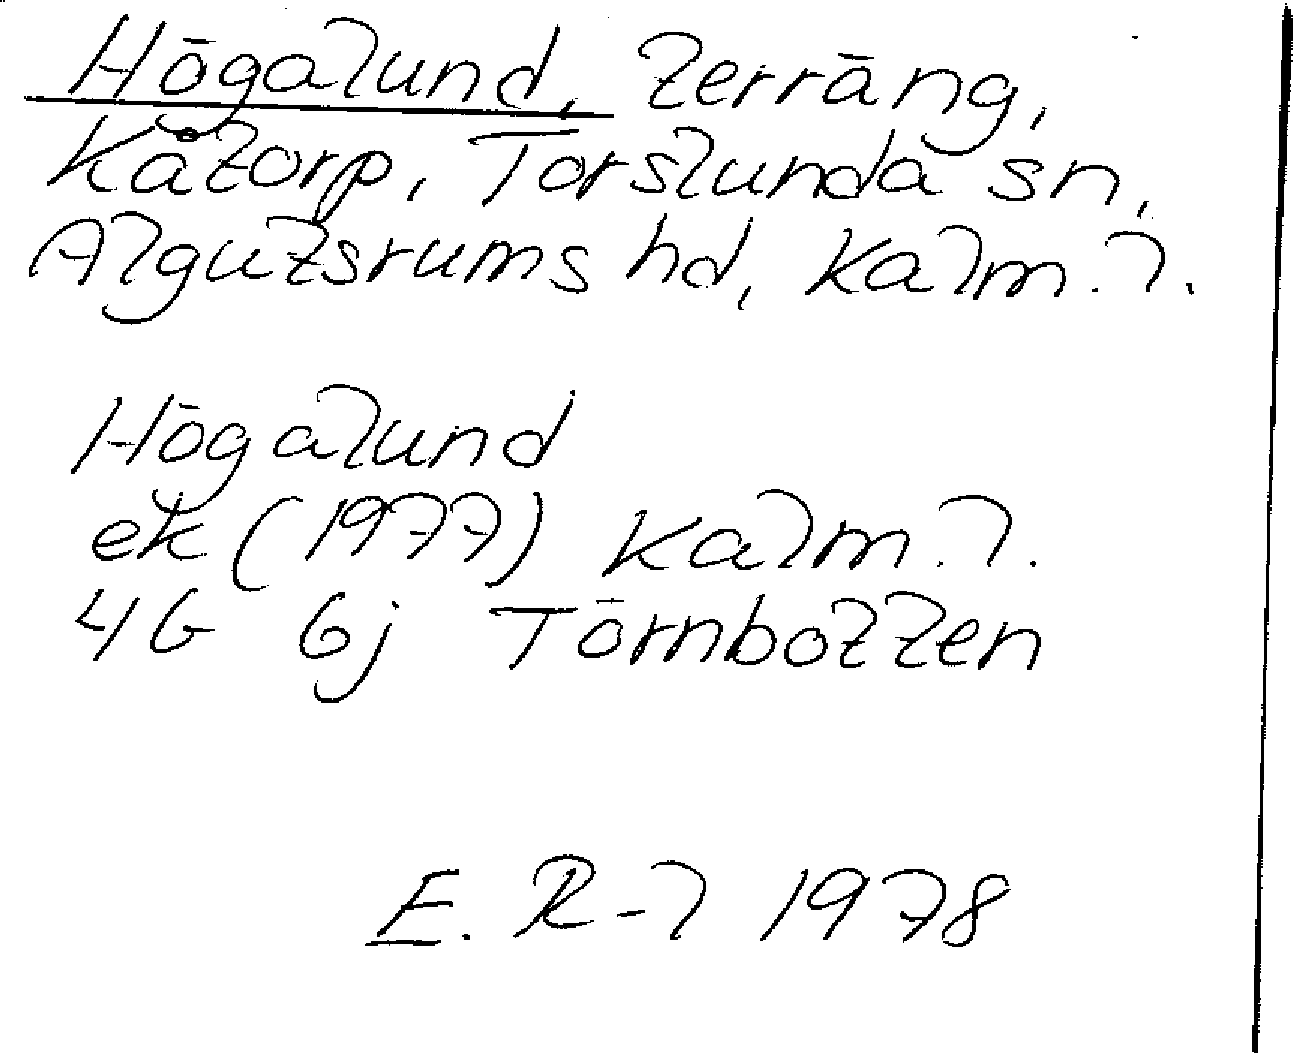 Högalund, terräng,
Kåtorp, Torslunda sn,
Algutsrums hd, Kalm. l.
Högalund
ek (1977) Kalm. l.
4G 6j Törnbotten
E. R-l 1978